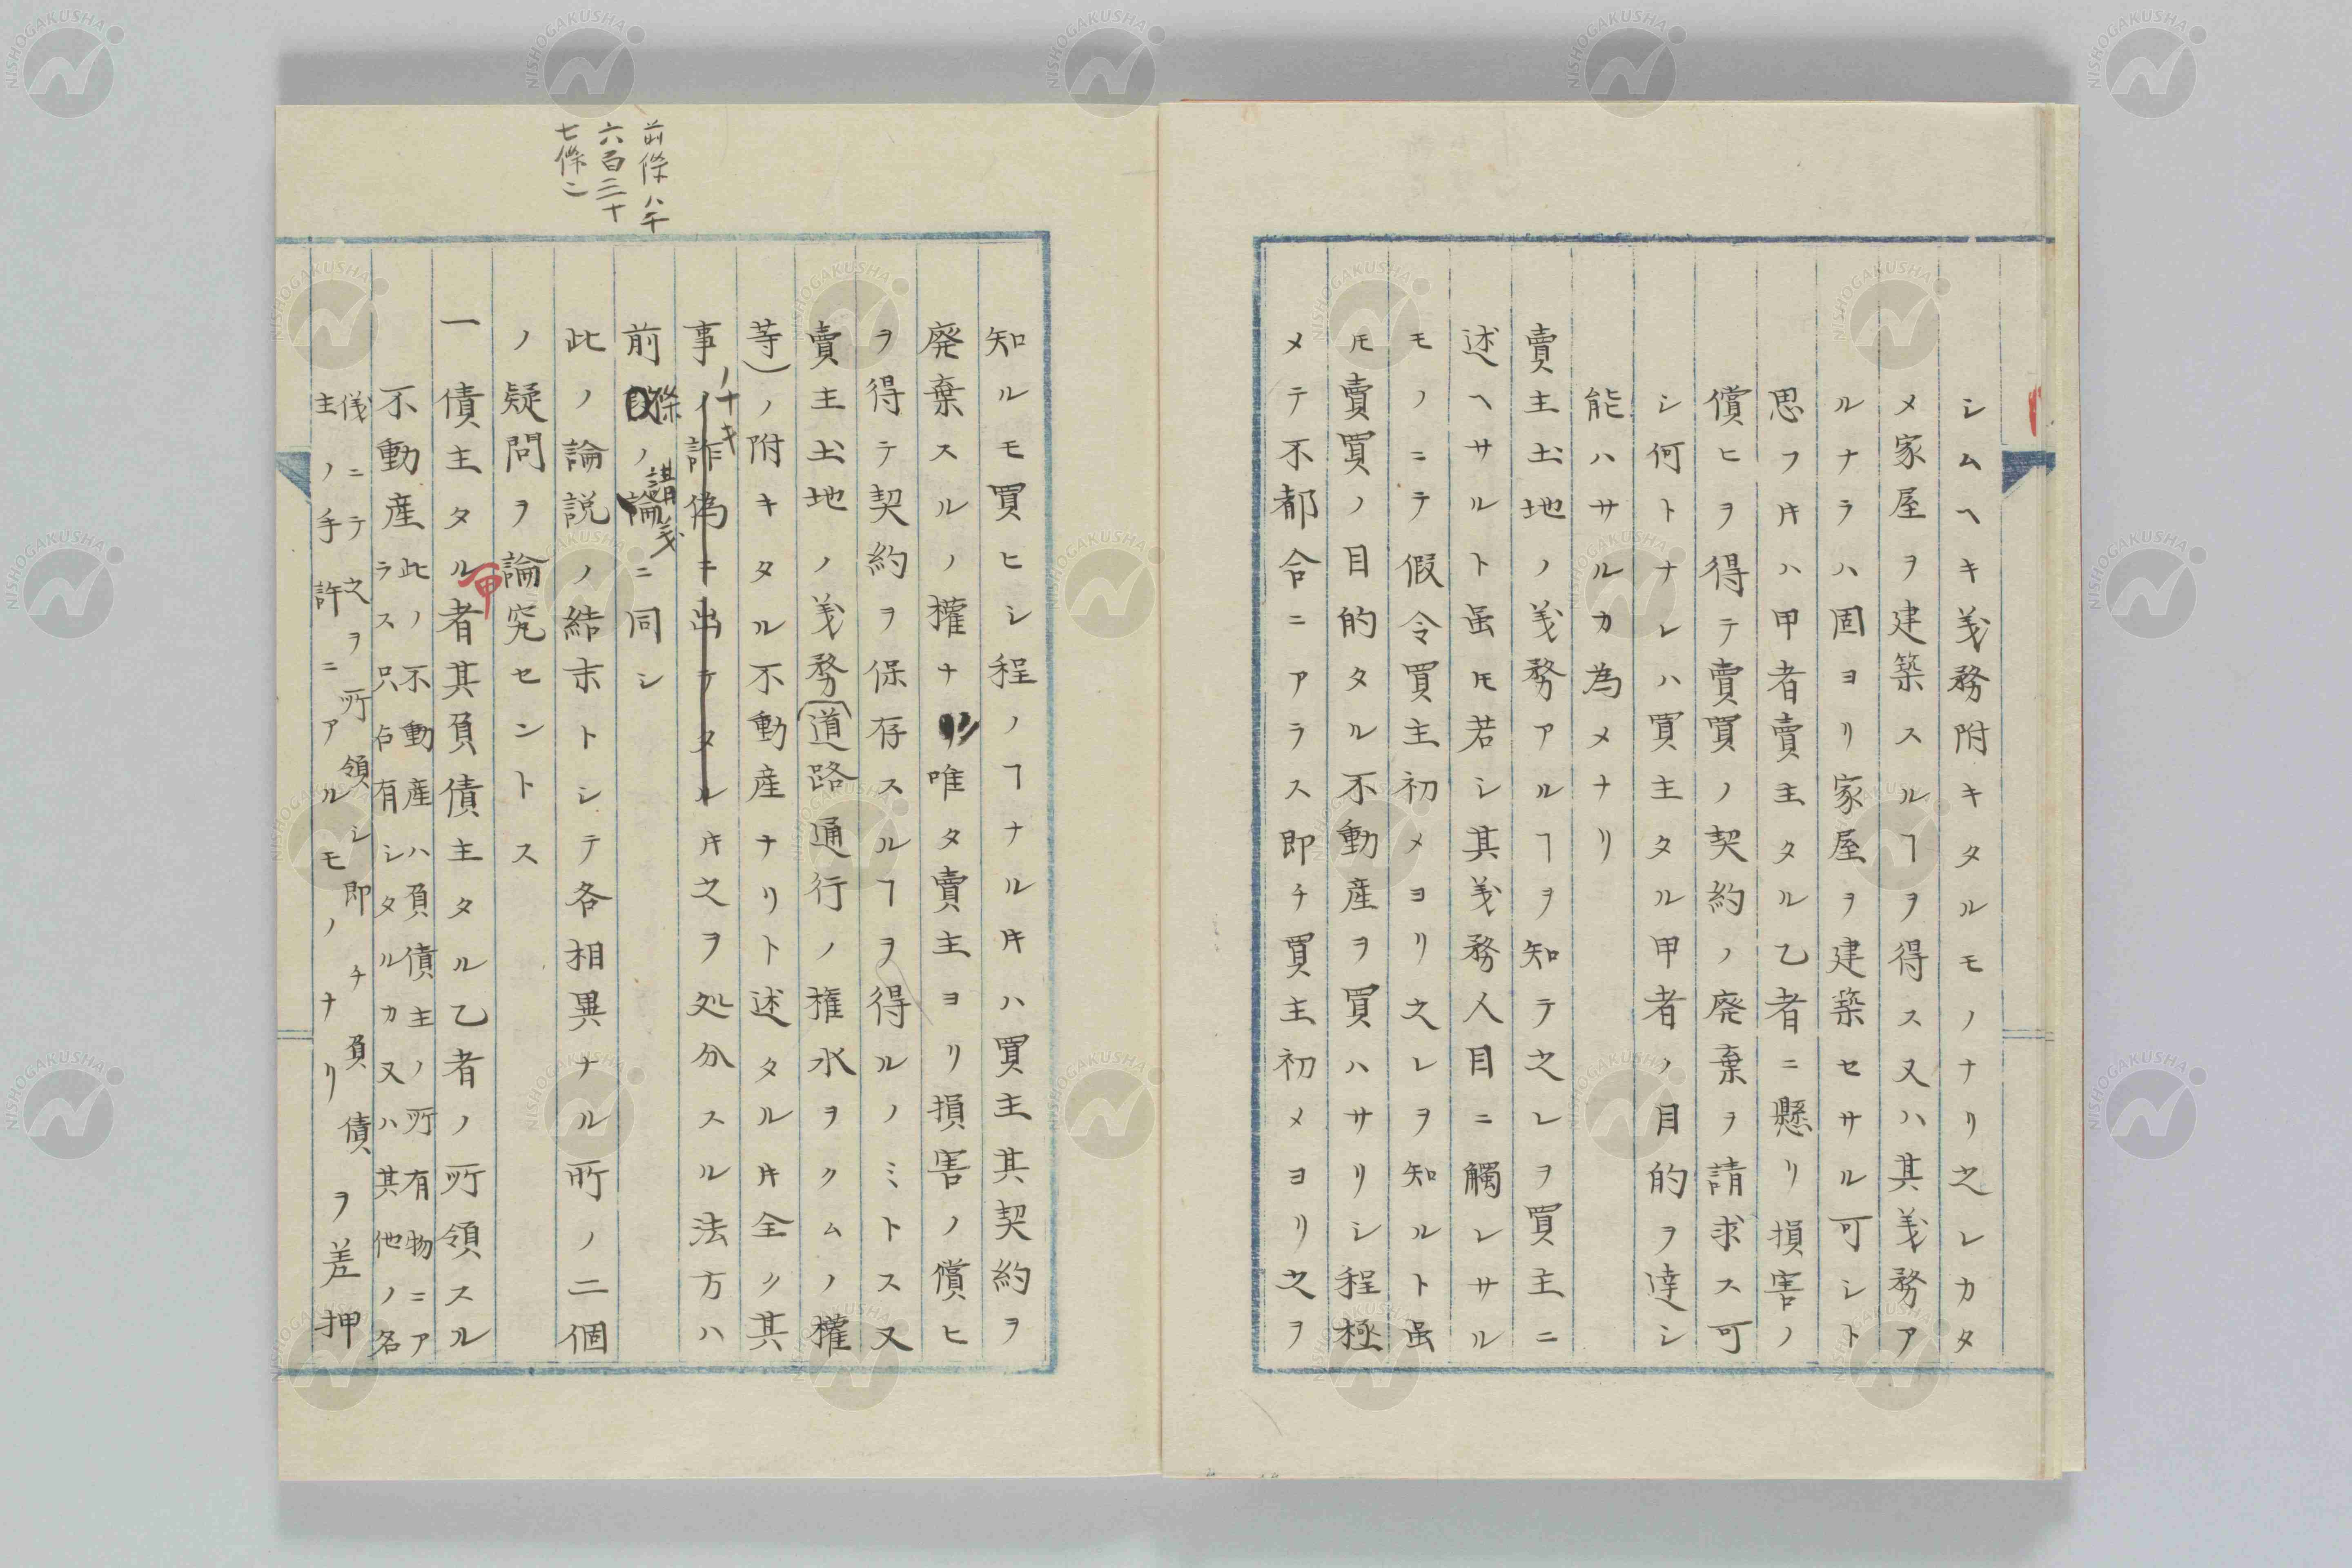 シムヘキ義務附キタルモノナリ之レカタ
メ家屋ヲ建築スルヿヲ得ス又ハ其義務ア
ルナラハ固ヨリ家屋ヲ建築セサル可シト
思フ𪜈ハ甲者賣主タル乙者ニ懸リ損害ノ
償ヒヲ得テ賣買ノ契約ノ廃棄ヲ請求ス可
シ何トナレハ買主タル甲者ノ目的ヲ達シ
能ハサルカ為メナリ
賣主土地ノ義務アルヿヲ知テ之レヲ買主ニ
述ヘサルト虽𪜈若シ其義務人目ニ觸レサル
モノニテ假令買主初メヨリ之レヲ知ルト虽
𪜈賣買ノ目的タル不動産ヲ買ハサリシ程極
メテ不都合ニアラス即チ買主初メヨリ之ヲ
知ルモ買ヒシ程ノヿナルキハ買主其契約ヲ
廃棄スルノ權ナシ唯タ賣主ヨリ損害ノ償ヒ
ヲ得テ契約ヲ保存スルヿヲ得ルノミトス又
賣主土地ノ義務(道路通行ノ権水ヲクムノ權
等)ノ附キタル不動産ナリト述タルキ全ク其
事ノナキ詐偽ニ出テタルキ之ヲ処分スル法方ハ
前條ノ論講義ニ同シ
此ノ論説ノ結末トシテ各相異ナル所ノ二個
ノ疑問ヲ論究セントス
一債主タル甲者其負債主タル乙者ノ所領スル
不動産此ノ不動産ハ負債主ノ所有物ニア
ラス只占有シタルカ又ハ其他ノ名
儀ニテ之ヲ所領シ即チ負債
主ノ手許ニアルモノナリヲ差押
前條ハ千
六百三十
七條ニ
NISHOGAKUSHA